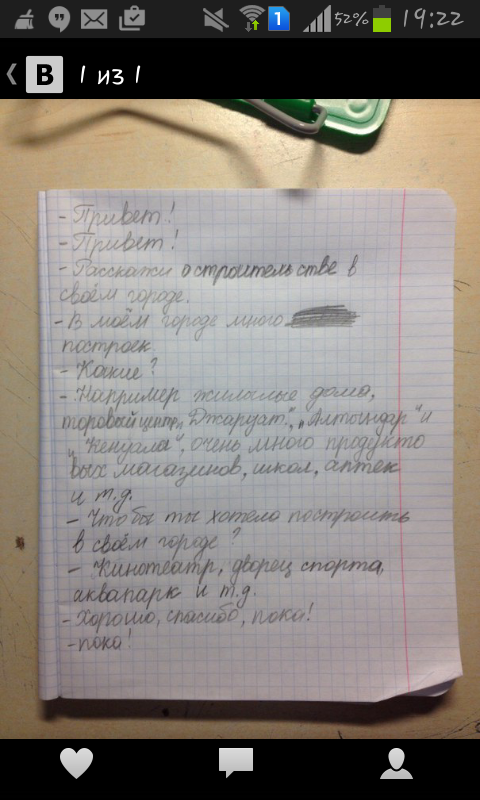 52% 19:22
1
B 1 из 1
- Привет!
- Привет!
- Расскажи о строительстве в
своём городе.
- В моём городе много
построек.
- Какие?
- Например жилылые дома,
"Джаруат", "Алтындар" и
очень много продукто
вых магазинов, школ, аптек
и т.д.
- Что бы ты хотела построить
в своём городе?
- Кинотеатр, дворец спорта,
аквапарк и т.д.
- Хорошо, спасибо, пока!
- пока!